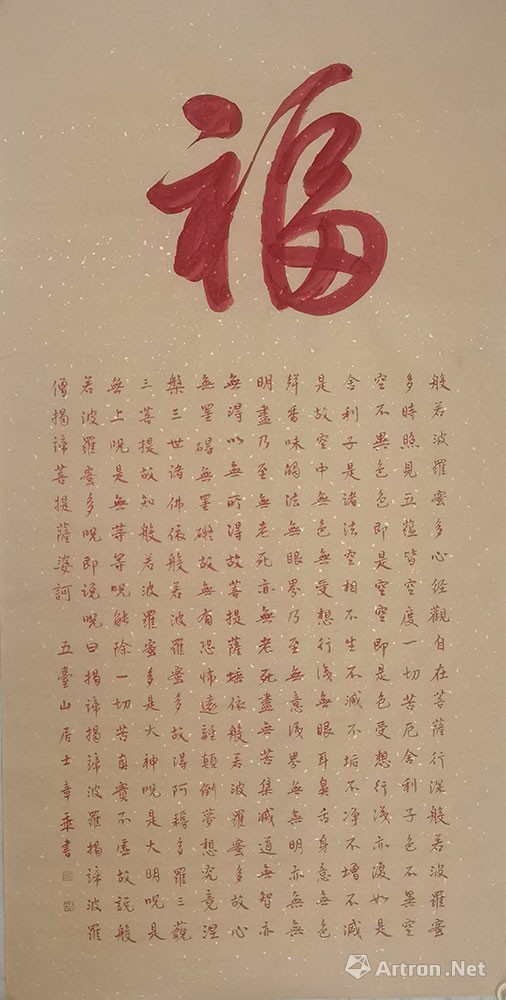 福
般若波羅蜜多心經觀自在菩薩行深般若波羅蜜
多時照見五蘊皆空度一切苦厄舍利子色不異空
空不異色色即是空空即是色受想行識亦復如是
舍利子是諸法空相不生不滅不垢不净不增不減
是故空中無色無受想行識無眼耳鼻舌身意無色
聲香味觸法無眼界乃至無意識界無無明亦無無
明盡乃至無老死亦無老死盡無苦集滅道無智亦
無得以無所得故菩提薩埵依般若波羅蜜多故心
無罣碍無罣礙故無有恐怖遠離顛倒夢想究竟涅
槃三世諸佛依般若波羅蜜多故得阿耨多羅三藐
三菩提故知般若波羅蜜多是大神呪是大明呪是
無上呪是無等等呪能除一切苦真實不虛故説般
若波羅蜜多呪即説呪曰揭諦揭諦波羅揭諦波羅
僧揭諦菩提薩婆訶 五臺山居士章乘書
Artron.Net